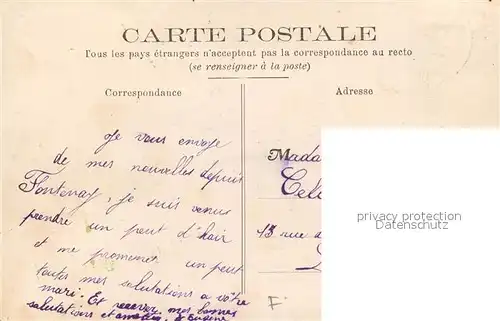 CARTE POSTALE
Tous les pays étrangers n'acceptent pas la correspondance au recto
(se renseigner à la poste)
Correspondance
Adresse
Je vous envoye
de mes nouvelles depuis
Fontenay, je suis venus
prendre un peut d'hair
et me promener un peut
toutes mes salutations a vôtre
mari. Et recevez mes bonnes
salutations et
Mada
Cel
13 rue d
privacy protection
Datenschutz
F